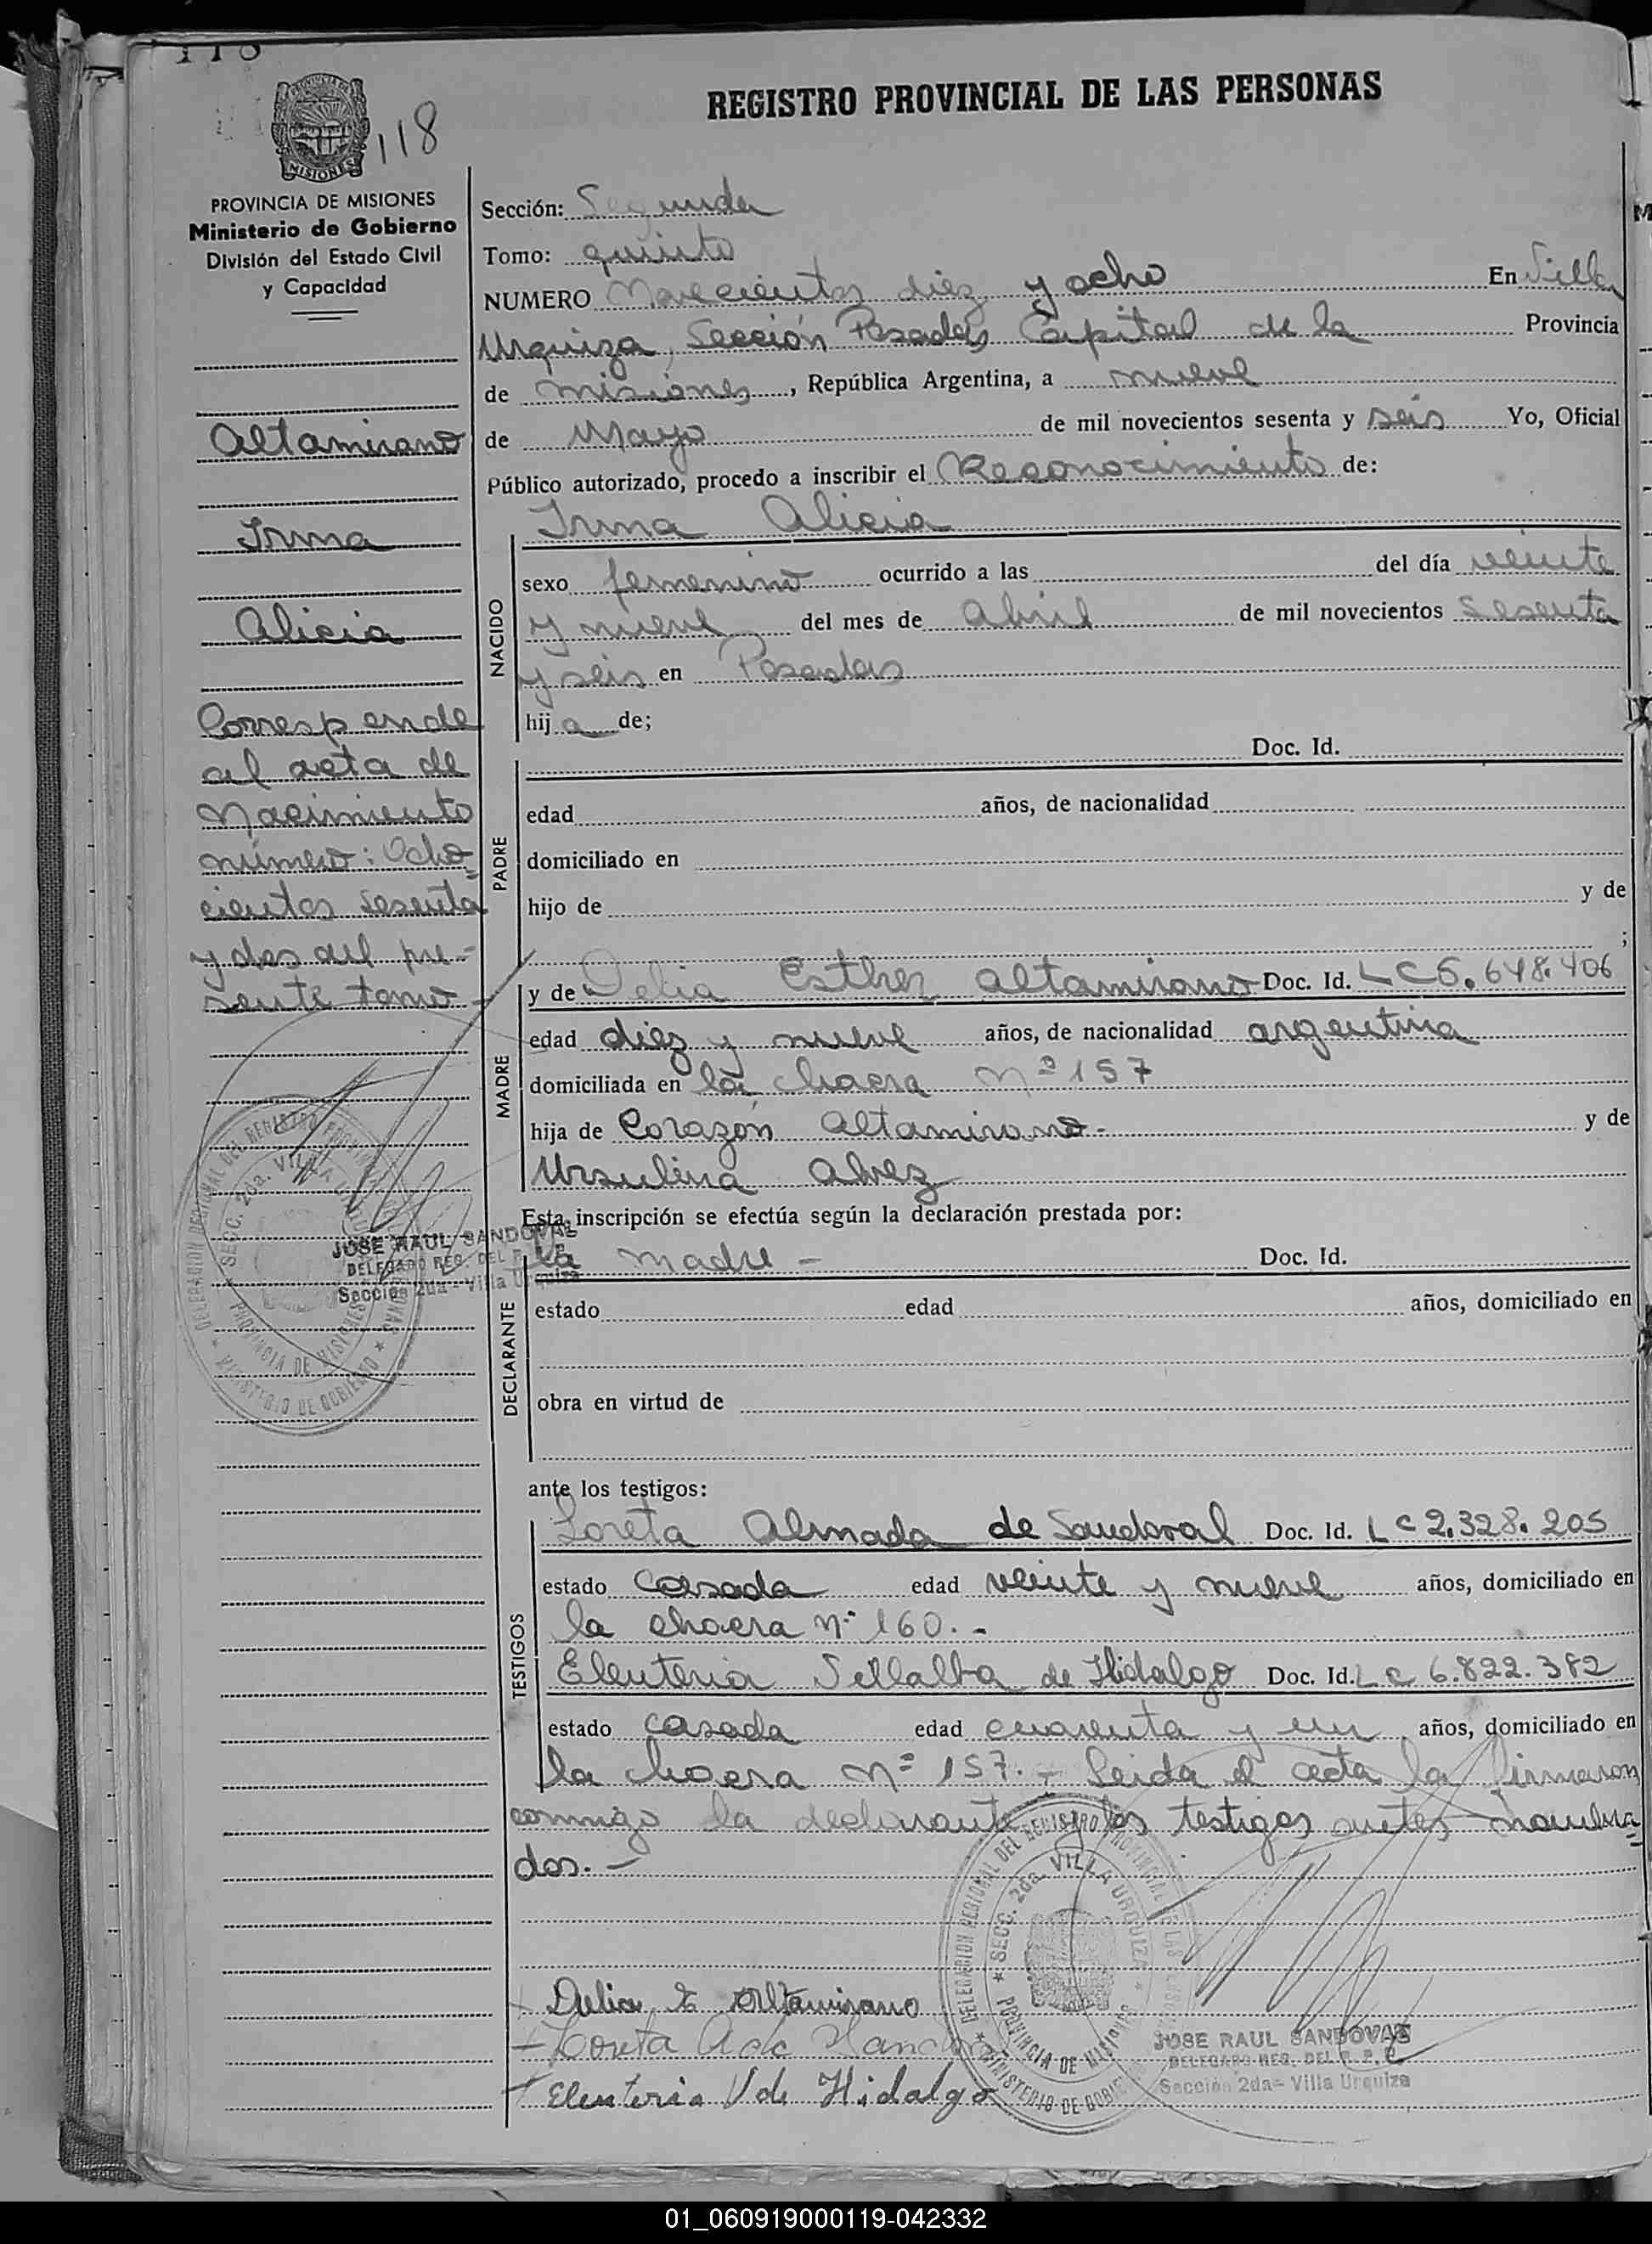 118
REGISTRO PROVINCIAL DE LAS PERSONAS
MISIONES
PROVINCIA DE MISIONES
Ministerio de Gobierno
División del Estado Civil
y Capacidad
Altamirano
Irma
Alicia
Corresponde
al acta de
Nacimiento
número: Ocho=
cientos sesenta
y dos del pre-
sente tomo-
Sección: Segunda
Tomo: quinto
NUMERO Novecientos diez y ocho En Villa
Urquiza, Sección Posadas Capital de la Provincia
de misiones, República Argentina, a nueve
de Mayo de mil novecientos sesenta y seis Yo, Oficial
Público autorizado, procedo a inscribir el Reconocimiento de:
Irma Alicia
NACIDO
sexo femenino ocurrido a las del día veinte
y nueve del mes de Abril de mil novecientos sesenta
y seis en Posadas
hija de;
Doc. Id.
PADRE
edad años, de nacionalidad
domiciliado en
hijo de y de
;
MADRE
y de Delia Esther Altamirano Doc. Id. LC 5.648.406
edad diez y nueve años, de nacionalidad argentina
domiciliada en la chacra Nº 157
hija de Corazón Altamirano- y de
Ursulina Alvez
Esta inscripción se efectúa según la declaración prestada por:
DECLARANTE
la madre - Doc. Id.
estado edad años, domiciliado en
obra en virtud de
ante los testigos:
TESTIGOS
Loreta Almada de Sandoval Doc. Id. LC 2.328.205
estado Casada edad veinte y nueve años, domiciliado en
la chacra Nº 160.-
Eleuteria Villalba de Hidalgo Doc. Id. LC 6.822.382
estado casada edad cuarenta y un años, domiciliado en
la chacra Nº 157.- Leida el acta la firmaron
conmigo la declarante y los testigos antes nombra=
dos.-
Delia E Altamirano
Loreta A de
Eleuteria V de Hidalgo
DELEGACION REGIONAL DEL REGISTRO PROVINCIAL DE LAS PERSONAS
SECC. 2da. VILLA URQUIZA
PROVINCIA DE MISIONES
MINISTERIO DE GOBIERNO
JOSE RAUL SANDOVAL
DELEGADO REG. DEL R. P. P.
Sección 2da - Villa Urquiza
DELEGACION REGIONAL DEL REGISTRO PROVINCIAL DE LAS PERSONAS
SECC. 2da. VILLA URQUIZA
PROVINCIA DE MISIONES
MINISTERIO DE GOBIERNO
JOSE RAUL SANDOVAL
DELEGADO REG. DEL R. P.
Sección 2da- Villa Urquiza
01_060919000119-042332